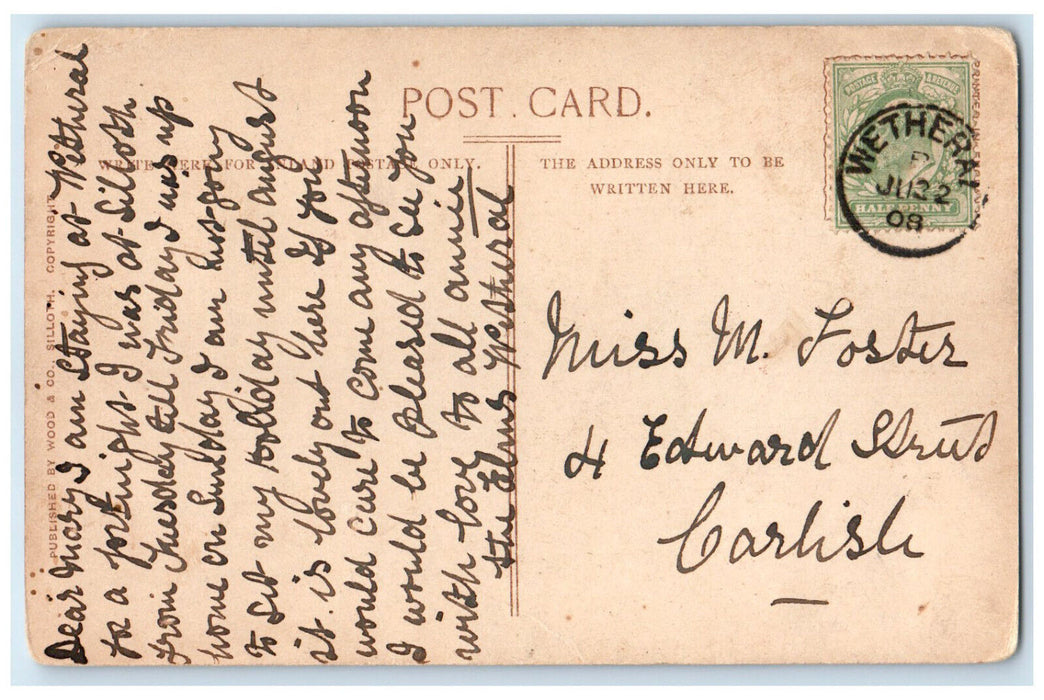 POST CARD.
WRITE HERE FOR INLAND POSTAGE ONLY.
THE ADDRESS ONLY TO BE
WRITTEN HERE.
PUBLISHED BY WOOD & CO., SILLOTH, COPYRIGHT.
POSTAGE & REVENUE
HALFPENNY
WETHERAL
08
Dear Mary I am staying at Wetheral
for a fortnight I was at Silloth
from Tuesday till Friday I was up
home on Sunday I am just going
to sit my holliday until august
it is lovely out here if you
would care to come any afternoon
I would be pleased to see you
with love to all annie
the Elms Wetheral
Miss M. Foster
4 Edward Street
Carlisle